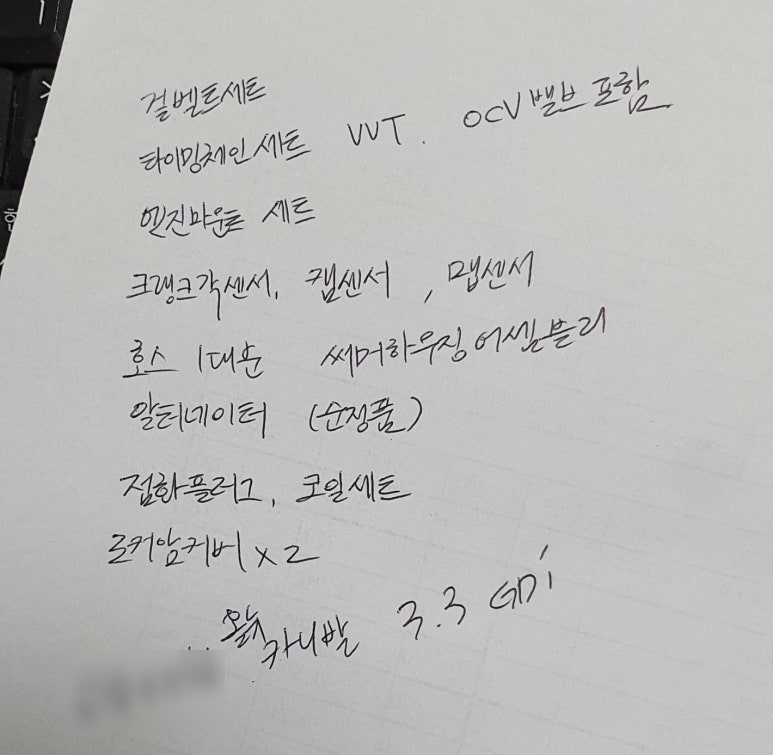 겉벨트세트
타이밍체인세트 VVT. OCV밸브 포함
엔진마운트 세트
크랭크각센서, 캠센서, 맵센서
호스 1대분 써머하우징어셈블리
알터네이터 (순정품)
점화플러그, 코일세트
로커암커버 x 2
올뉴카니발 3.3 GDi